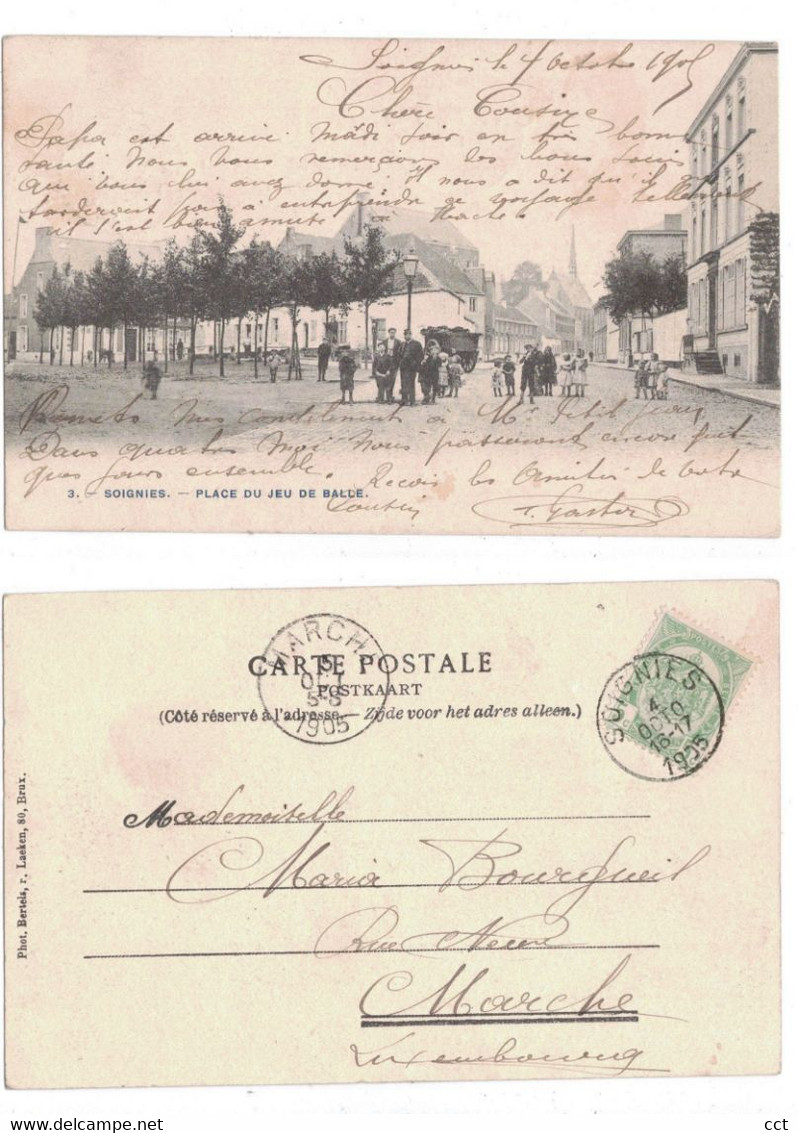 Soignies le 4 Octobre 1905
Chère Cousine
Papa est arrivé Mâdi soir en très bonne
santé Nous vous remerçions les bons soins
que vous lui avez donné. Il nous a dit qu'il
tarderoit pas à entreprendre ce voyage tellement
il s'est bien amusé
Remets mes compliments à Mr Petit Jean
Dans quatre moi nous passeront encore quel-
ques jours ensemble.
Recois les Amitiés de votre
Cousin
3. - SOIGNIES. - PLACE DU JEU DE BALLE.
MARCHE
5
OCT
1905
CARTE POSTALE
POSTKAART
(Côté réservé à l'adresse. — Zijde voor het adres alleen.)
POSTES
SOIGNIES
4
OCTO
16-17
1905
Phot. Bertels, r. Laeken, 80, Brux.
Mademoiselle
Maria Bourgueil
Rue Neuve
Marche
Luxembourg
cct